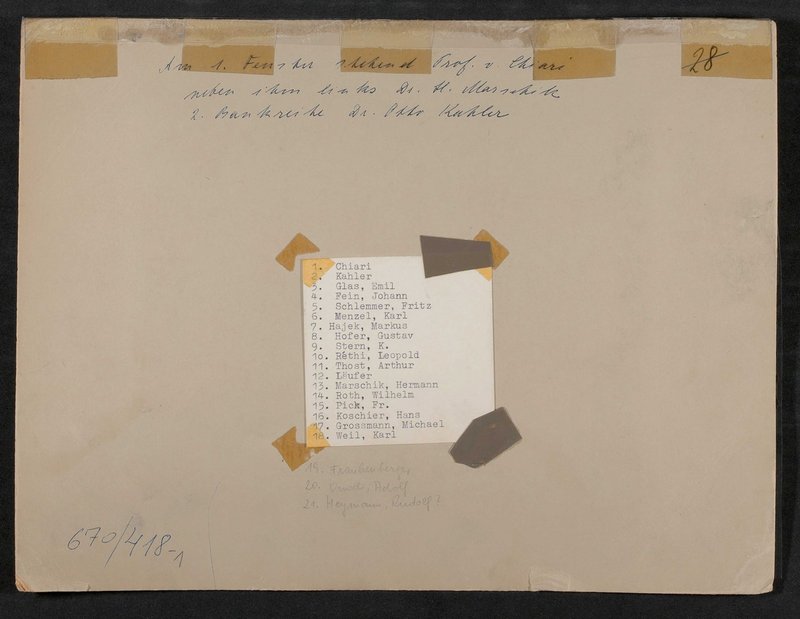 28
Am 1. Fenster stehend Prof. v. Chiari
neben ihm links Dr. H. Marschik
2. Bankreihe Dr. Otto Kahler
1. Chiari
2. Kahler
3. Glas, Emil
4. Fein, Johann
5. Schlemmer, Fritz
6. Menzel, Karl
7. Hajek, Markus
8. Hofer, Gustav
9. Stern, K.
10. Réthi, Leopold
11. Thost, Arthur
12. Läufer
13. Marschik, Hermann
14. Roth, Wilhelm
15. Pick, Fr.
16. Koschier, Hans
17. Grossmann, Michael
18. Weil, Karl
19.
20. Adolf
21. Heymann, Rudolf?
670/418-1